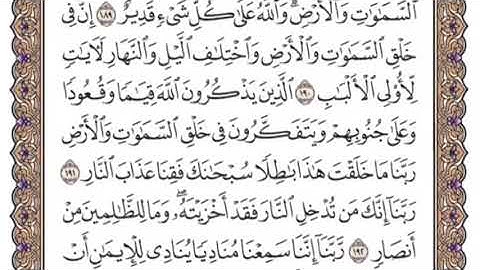 ٱلسَّمَٰوَٰتِ وَٱلْأَرْضِۗ وَٱللَّهُ عَلَىٰ كُلِّ شَىْءٍ قَدِيرٌ ١٨٩ إِنَّ فِى
خَلْقِ ٱلسَّمَٰوَٰتِ وَٱلْأَرْضِ وَٱخْتِلَٰفِ ٱلَّيْلِ وَٱلنَّهَارِ لَءَايَٰتٍ
لِّأُو۟لِى ٱلْأَلْبَٰبِ ١٩٠ ٱلَّذِينَ يَذْكُرُونَ ٱللَّهَ قِيَٰمًا وَقُعُودًا
وَعَلَىٰ جُنُوبِهِمْ وَيَتَفَكَّرُونَ فِى خَلْقِ ٱلسَّمَٰوَٰتِ وَٱلْأَرْضِ
رَبَّنَا مَا خَلَقْتَ هَٰذَا بَٰطِلًا سُبْحَٰنَكَ فَقِنَا عَذَابَ ٱلنَّارِ ١٩١
رَبَّنَآ إِنَّكَ مَن تُدْخِلِ ٱلنَّارَ فَقَدْ أَخْزَيْتَهُۥۖ وَمَا لِلظَّٰلِمِينَ مِنْ
أَنصَارٍ ١٩٢ رَّبَّنَآ إِنَّنَا سَمِعْنَا مُنَادِيًا يُنَادِى لِلْإِيمَٰنِ أَنْ